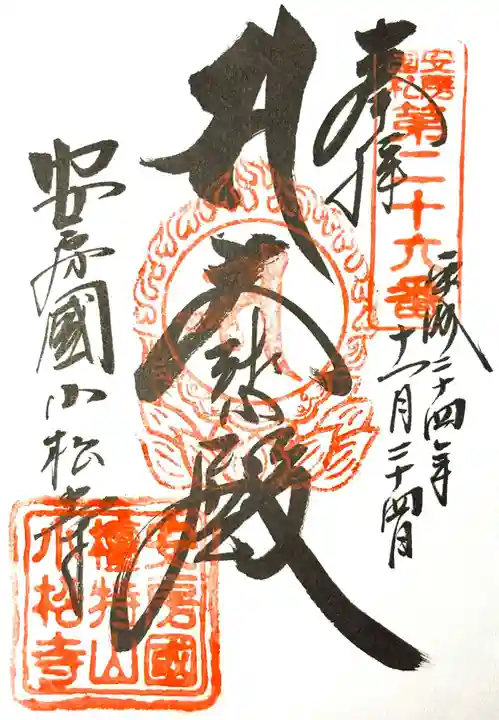 奉拝
安房
国札
第二十六番
平成二十四年
十一月二十四日
大悲殿
安房國小松寺
安房國
檀特山
小松寺